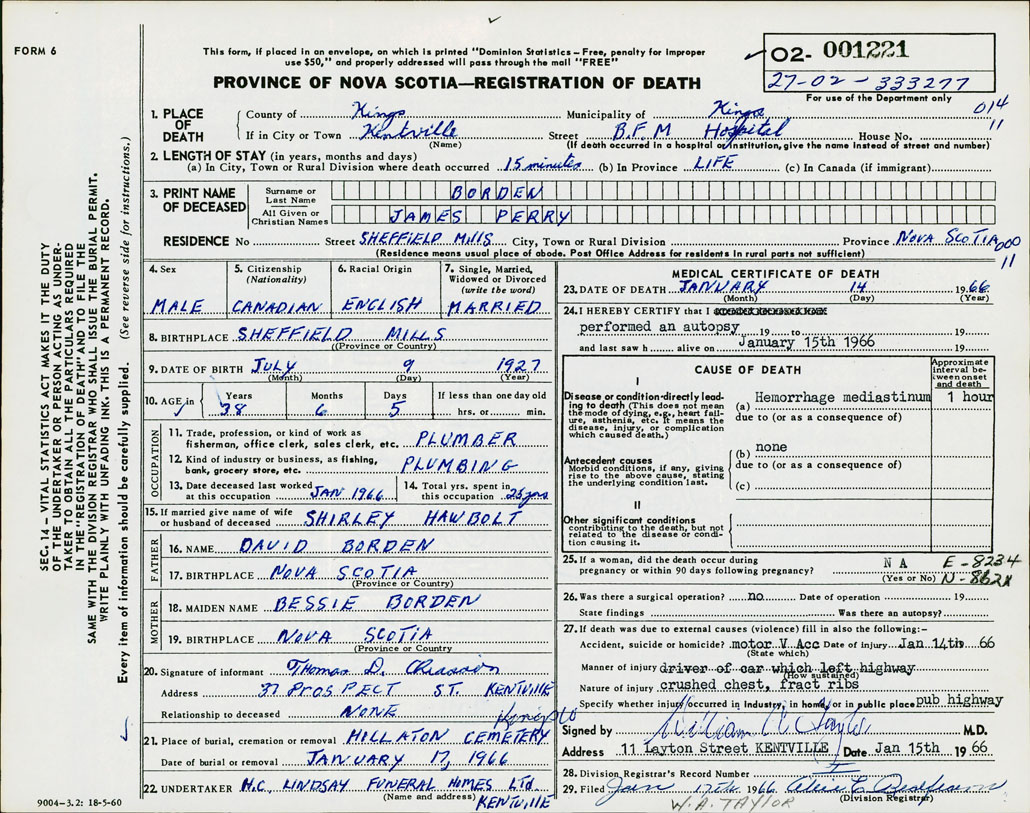 FORM 6
This form, if placed in an envelope, on which is printed "Dominion Statistics – Free, penalty for improper
use $50," and properly addressed will pass through the mail "FREE"
PROVINCE OF NOVA SCOTIA—REGISTRATION OF DEATH
02- 001221
27-02-333277
For use of the Department only
014
11
1. PLACE OF DEATH
County of Kings Municipality of Kings
If in City or Town Kentville Street B.F M Hospital House No.
(Name) (If death occurred in a hospital or institution, give the name instead of street and number)
2. LENGTH OF STAY (in years, months and days)
(a) In City, Town or Rural Division where death occurred 15 minutes (b) In Province LIFE (c) In Canada (if immigrant)
3. PRINT NAME OF DECEASED
Surname or Last Name BORDEN
All Given or Christian Names JAMES PERRY
RESIDENCE No Street SHEFFIELD MILLS City, Town or Rural Division Province NOVA SCOTIA 000
11
(Residence means usual place of abode. Post Office Address for residents in rural parts not sufficient)
4. Sex 5. Citizenship (Nationality) 6. Racial Origin 7. Single, Married, Widowed or Divorced (write the word)
MALE CANADIAN ENGLISH MARRIED
8. BIRTHPLACE SHEFFIELD MILLS
(Province or Country)
9. DATE OF BIRTH JULY 9 1927
(Month) (Day) (Year)
10. AGE in Years Months Days If less than one day old
38 6 5 hrs. or min.
OCCUPATION
11. Trade, profession, or kind of work as
fisherman, office clerk, sales clerk, etc. PLUMBER
12. Kind of industry or business, as fishing,
bank, grocery store, etc. PLUMBING
13. Date deceased last worked at this occupation JAN 1966 14. Total yrs. spent in this occupation 25 yrs
15. If married give name of wife
or husband of deceased SHIRLEY HAWBOLT
FATHER
16. NAME DAVID BORDEN
17. BIRTHPLACE NOVA SCOTIA
(Province or Country)
MOTHER
18. MAIDEN NAME BESSIE BORDEN
19. BIRTHPLACE NOVA SCOTIA
(Province or Country)
20. Signature of informant Thomas D. Chiasson
Address 37 PROSPECT ST. KENTVILLE
Relationship to deceased NONE
21. Place of burial, cremation or removal HILLATON CEMETERY
Date of burial or removal JANUARY 17, 1966
22. UNDERTAKER H.C. LINDSAY FUNERAL HOMES LTD.
(Name and address) KENTVILLE
9004–3.2: 18-5-60
MEDICAL CERTIFICATE OF DEATH
23. DATE OF DEATH JANUARY 14 1966
(Month) (Day) (Year)
24. I HEREBY CERTIFY that I
performed an autopsy 19 to 19
and last saw h alive on January 15th 1966 19
CAUSE OF DEATH
Approximate interval between onset and death
I
Disease or condition-directly leading to death (This does not mean the mode of dying, e.g., heart failure, asthenia, etc. It means the disease, injury, or complication which caused death.)
(a) Hemorrhage mediastinum 1 hour
due to (or as a consequence of)
Antecedent causes
Morbid conditions, if any, giving rise to the above cause, stating the underlying condition last.
(b) none
due to (or as a consequence of)
(c)
II
Other significant conditions
contributing to the death, but not related to the disease or condition causing it.
25. If a woman, did the death occur during
pregnancy or within 90 days following pregnancy? N A
(Yes or No)
E-8234
N-862X
26. Was there a surgical operation? no Date of operation 19
State findings Was there an autopsy?
27. If death was due to external causes (violence) fill in also the following:-
Accident, suicide or homicide? motor V Acc Date of injury Jan 14th 66
(State which)
Manner of injury driver of car which left highway
(How sustained)
Nature of injury crushed chest, fract ribs
Specify whether injury occurred in industry, in home, or in public place pub highway
Signed by M.D.
Address 11 Layton Street KENTVILLE Date Jan 15th 1966
28. Division Registrar's Record Number
29. Filed Jan 17th 1966
(Division Registrar)
W. A. TAYLOR
SEC. 14 – VITAL STATISTICS ACT MAKES IT THE DUTY
OF THE UNDERTAKER OR PERSON ACTING AS UNDER-
TAKER TO OBTAIN ALL THE PARTICULARS REQUIRED
IN THE "REGISTRATION OF DEATH" AND TO FILE THE
SAME WITH THE DIVISION REGISTRAR WHO SHALL ISSUE THE BURIAL PERMIT.
WRITE PLAINLY WITH UNFADING INK. THIS IS A PERMANENT RECORD.
Every item of information should be carefully supplied. (See reverse side for instructions.)